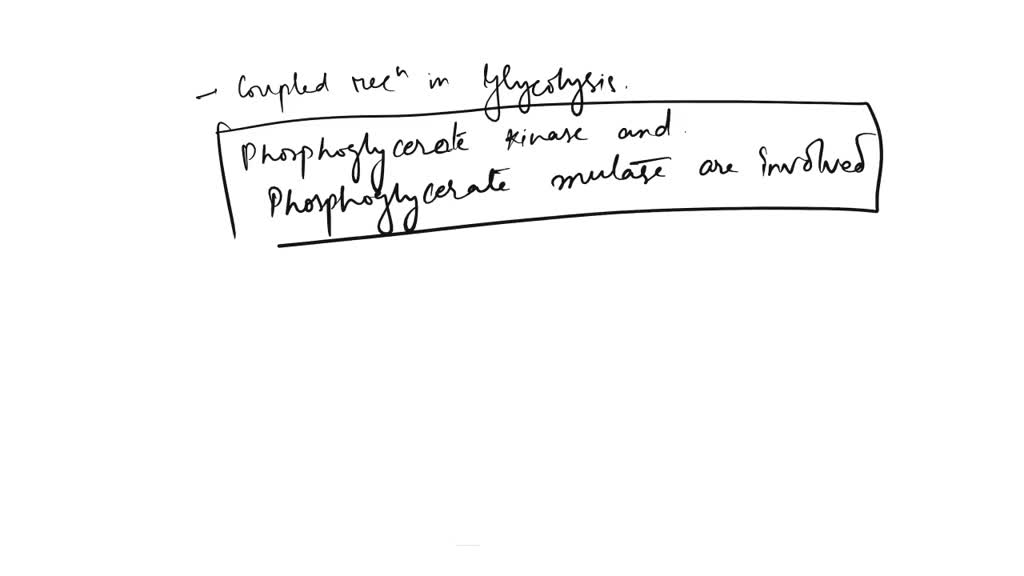 - Coupled recⁿ in Glycolysis.
Phosphoglycerate kinase and
Phosphoglycerate mutase are involved